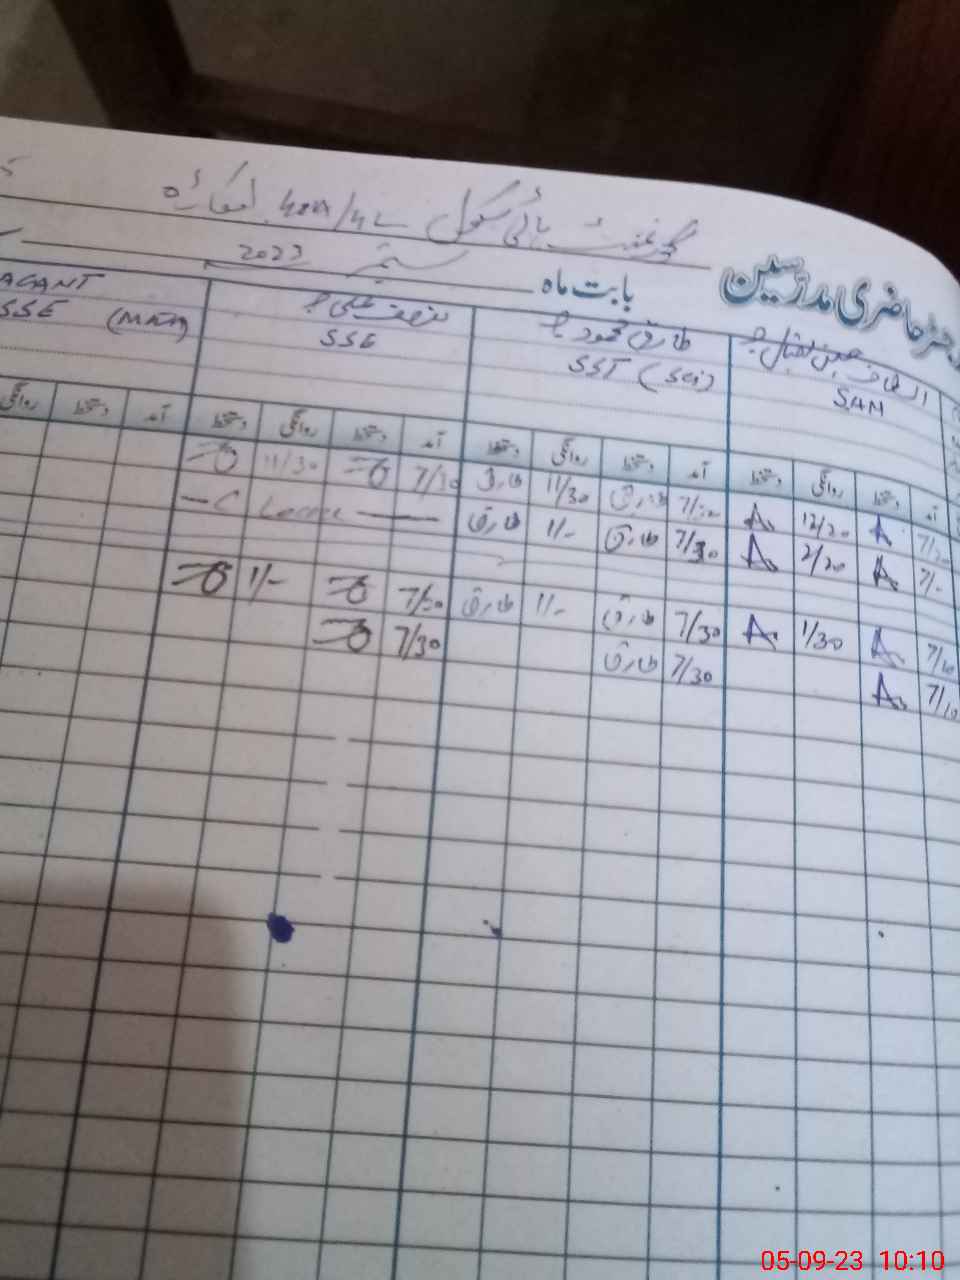 گورنمنٹ ہائی سکول 40A/4L اوکاڑہ
حاضری مدرسین
بابت ماہ ستمبر 2023
SAM
طارق محمود
SST (Sci)
SSE
VACANT
SSE (Math)
آمد دستخط روانگی دستخط آمد دستخط روانگی دستخط آمد دستخط روانگی دستخط آمد دستخط روانگی
A 12/20 A 7/30 طارق 11/30 طارق 7/30 11/30
A 2/20 A 7/30 طارق 1/- طارق C Leave
7/10 A 1/30 A 7/30 طارق 1/- طارق 7/30 1/-
7/10 A 7/30 طارق 7/30
05-09-23 10:10